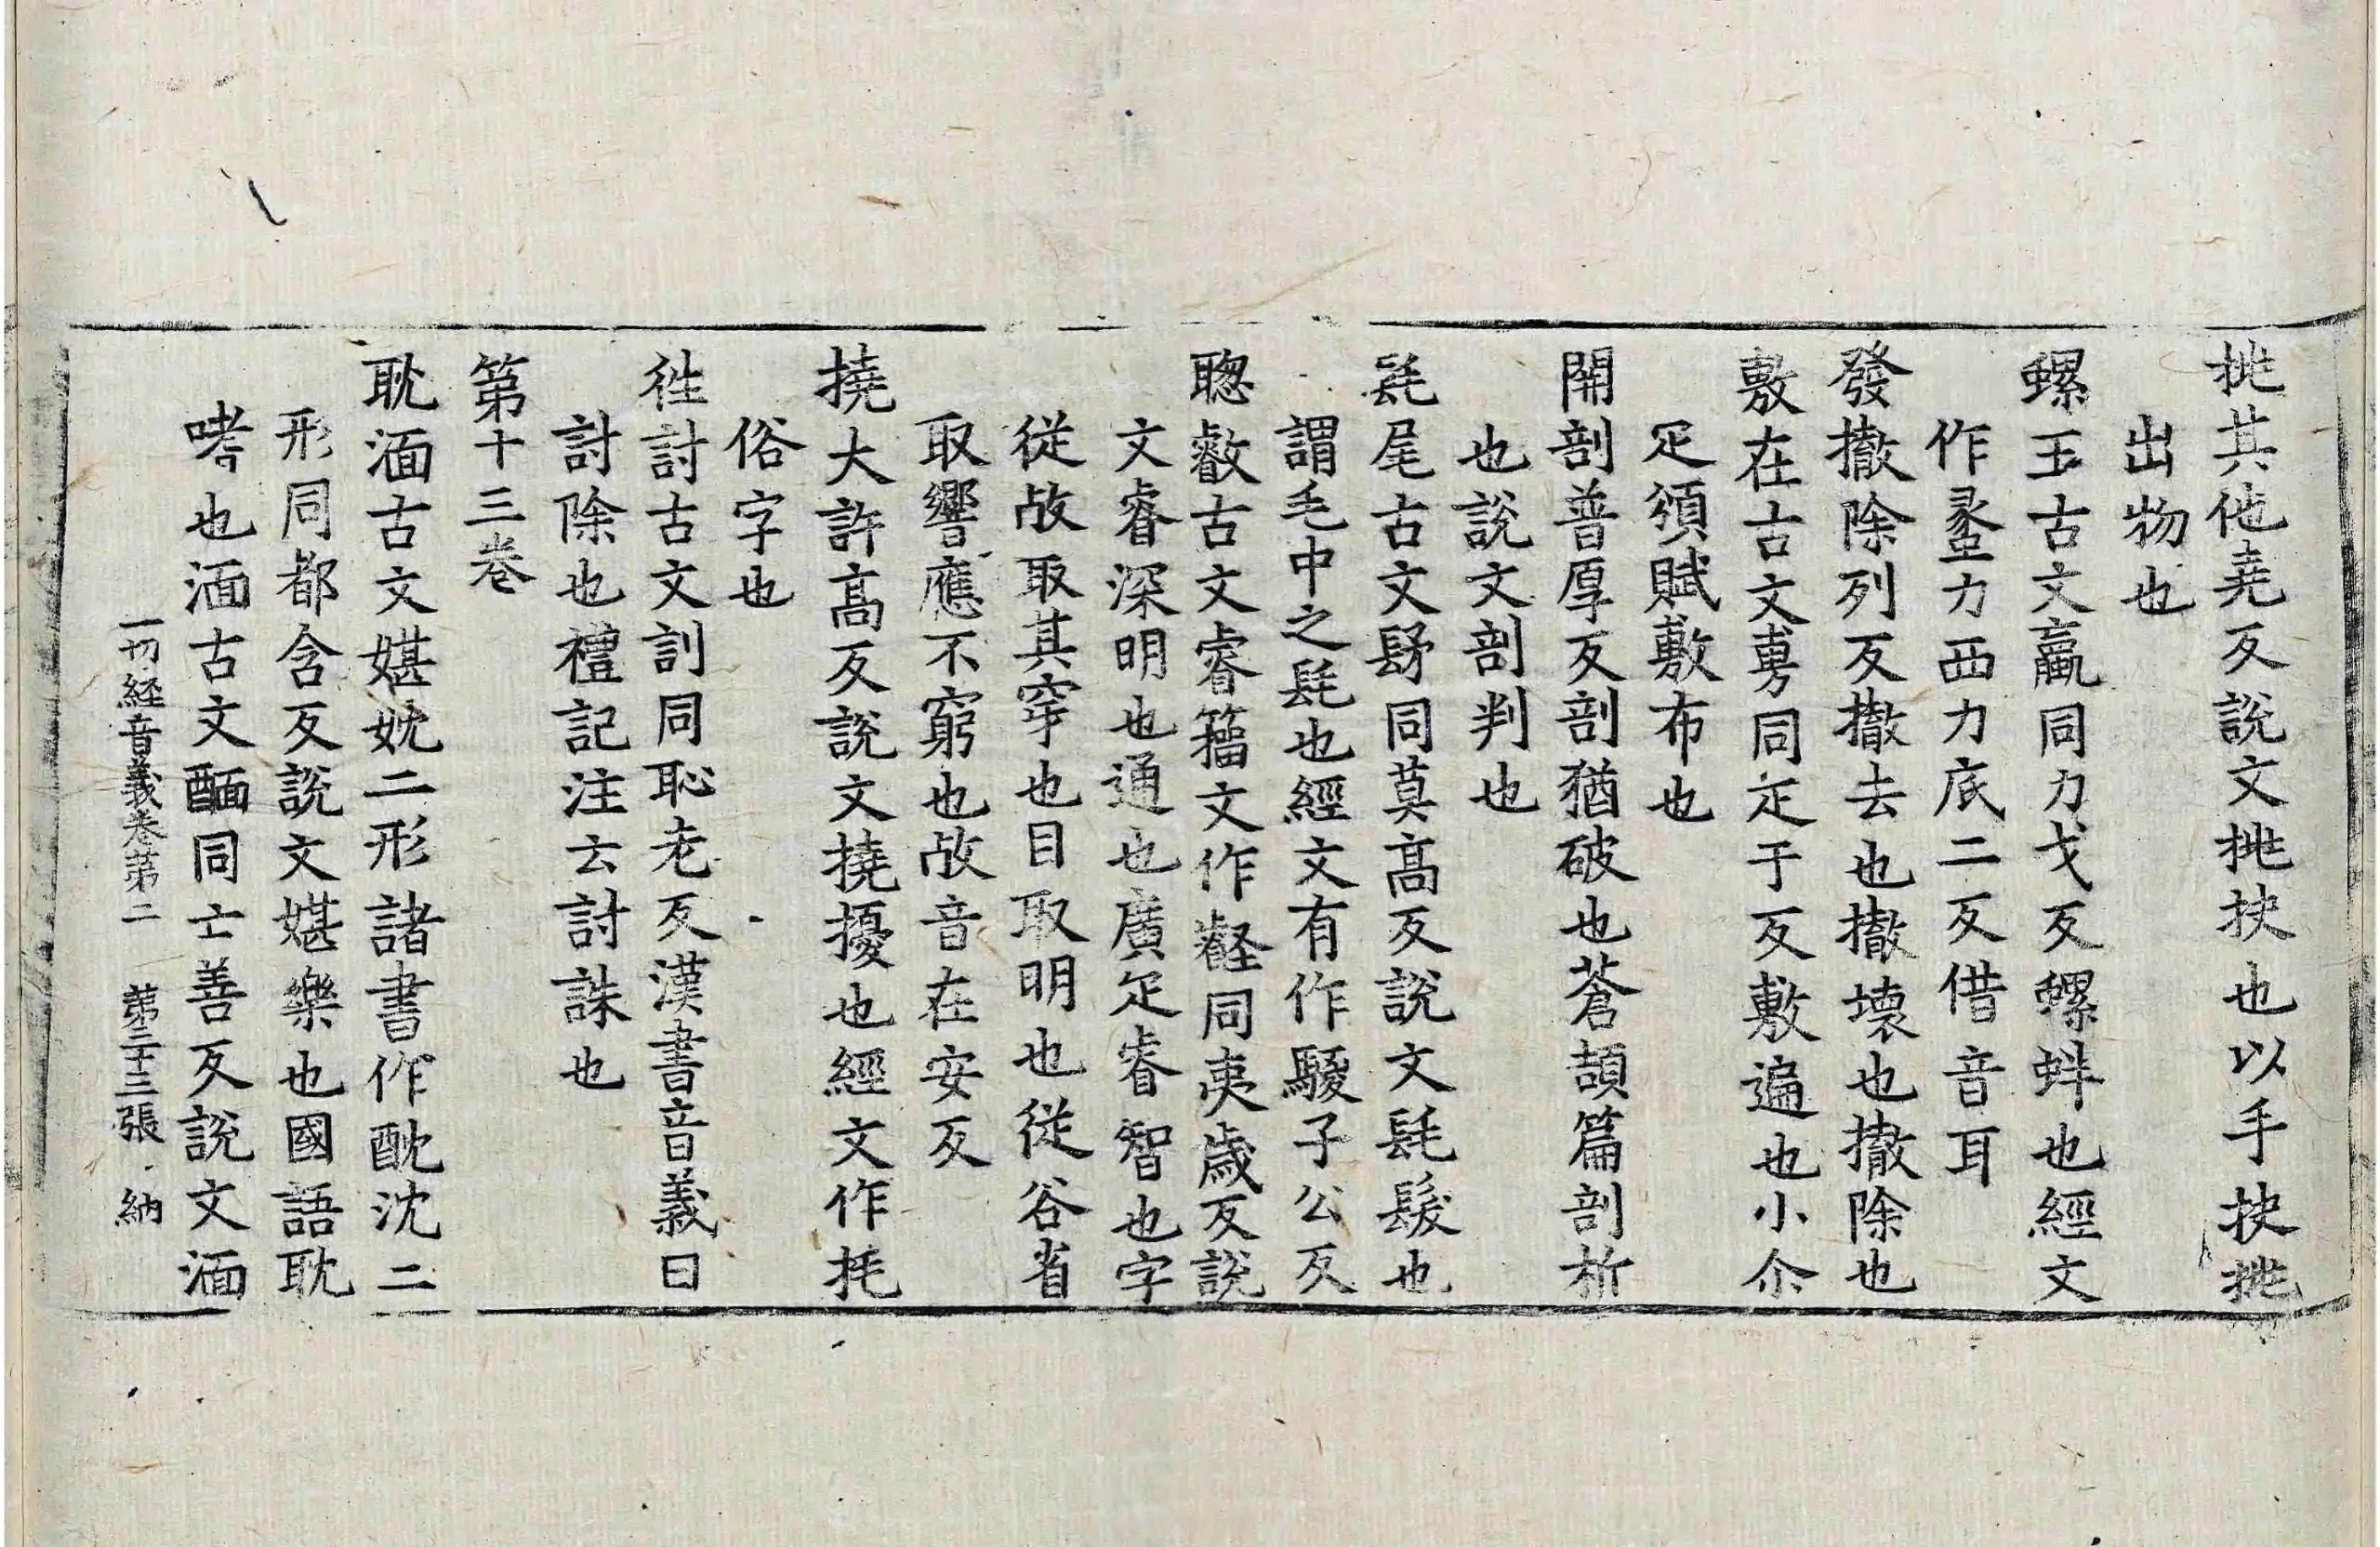 挑其他堯反說文挑抉也以手抉挑
出物也
螺王古文蠃同力戈反螺蚌也經文
作蠡力西力底二反借音耳
發撤除列反撤去也撤壞也撤除也
敷在古文旉同疋于反敷遍也小尒
疋頒賦敷布也
開剖普厚反剖猶破也蒼頡篇剖析
也說文剖判也
髦尾古文髳同莫高反說文髦髮也
謂毛中之髦也經文有作騣子公反
聰叡古文睿籀文作壡同夷歲反說
文睿深明也通也廣疋睿智也字
從㕡取其穿也目取明也從谷省
取響應不窮也㕡音在安反
撓大許高反說文撓擾也經文作抚
俗字也
往討古文訓同恥老反漢書音義曰
討除也禮記注云討誅也
第十三卷
耽湎古文媅妉二形諸書作酖沈二
形同都含反說文媅樂也國語耽
嗜也湎古文醽同亡善反說文湎
一切経音義卷第二 第二十三張 納